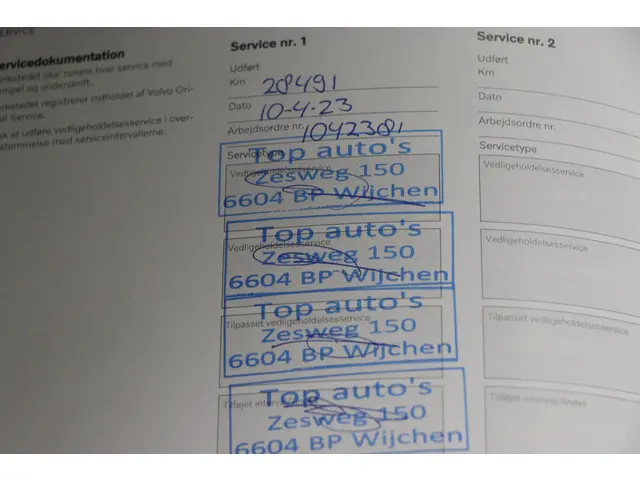 SERVICE
Servicedokumentation
skal notere hver service med
stempel og underskrift.
registrerer indholdet af Volvo
Service.
at udføre vedligeholdelsesservice i over-
stemmelse med serviceintervallerne.
Service nr. 1
Udført
Km 28491
Dato 10-4-23
Arbejdsordre nr. 1042381
Servicetype
Top auto's
Vedligeholdelsesservice
Zesweg 150
6604 BP Wijchen
Top auto's
Vedligeholdelsesservice
Zesweg 150
6604 BP Wijchen
Top auto's
Tilpasset vedligeholdelsesservice
Zesweg 150
6604 BP Wijchen
Top auto's
Tilføjet
Zesweg 150
6604 BP Wijchen
Service nr. 2
Udført
Km
Dato
Arbejdsordre nr.
Servicetype
Vedligeholdelsesservice
Vedligeholdelsesservice
Tilpasset vedligeholdelsesservice
Tilføjet interval/Andet